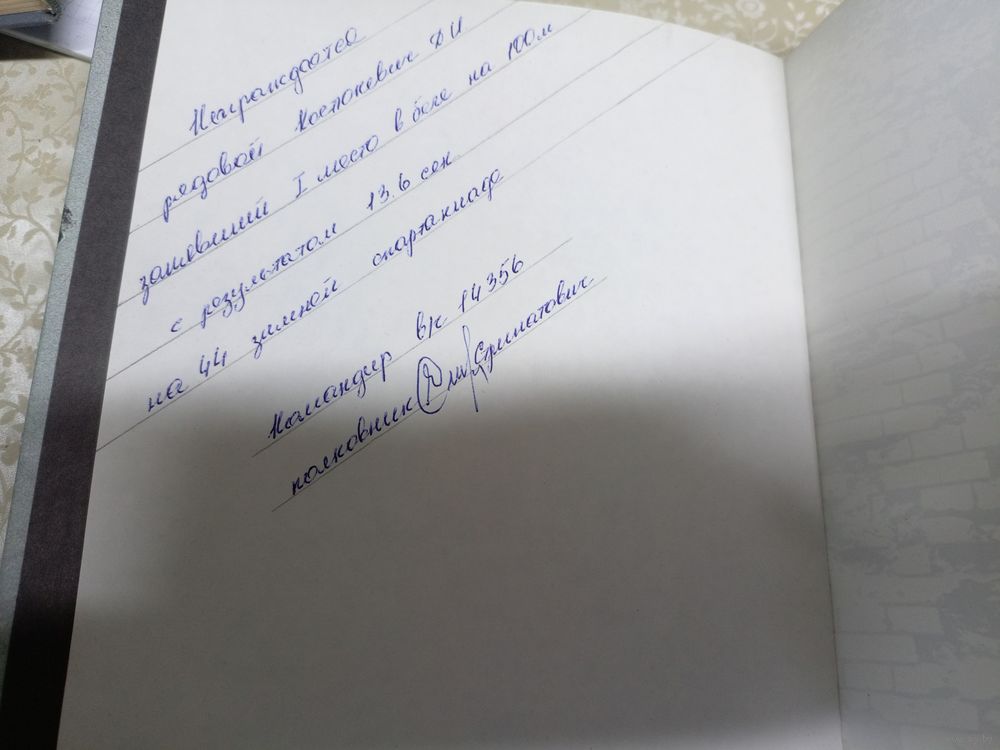 Награждается
рядовой Костюкевич Д И
занявший I место в беге на 100м
с результатом 13.6 сек
на 44 зимней спартакиаде
Командир в/ч 14356
полковник